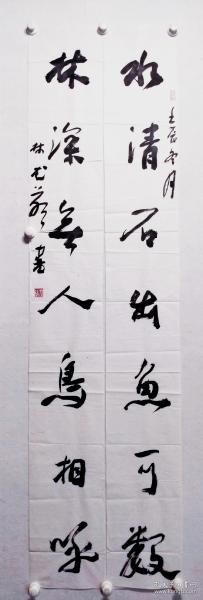 水清石出魚可數
壬辰冬月
林深無人鳥相呼
書